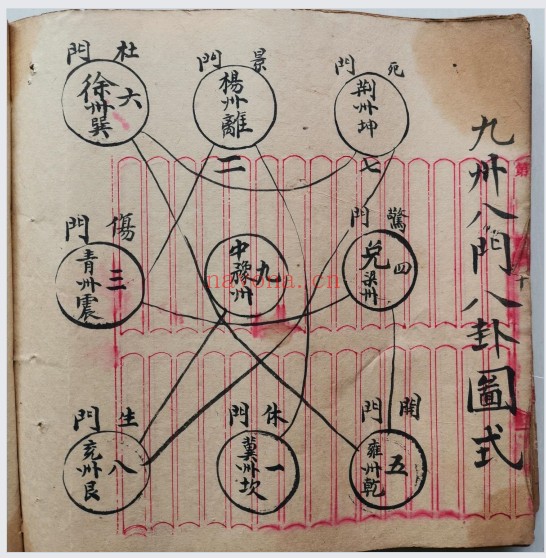 九州八門八卦圖式
死門
荆州坤
七
景門
楊州離
二
杜門
徐州巽
六
驚門
兌
梁州
四
中豫州
九
傷門
青州震
三
開門
雍州乾
五
休門
冀州坎
一
生門
兖州艮
八
第
十
nayona.cn